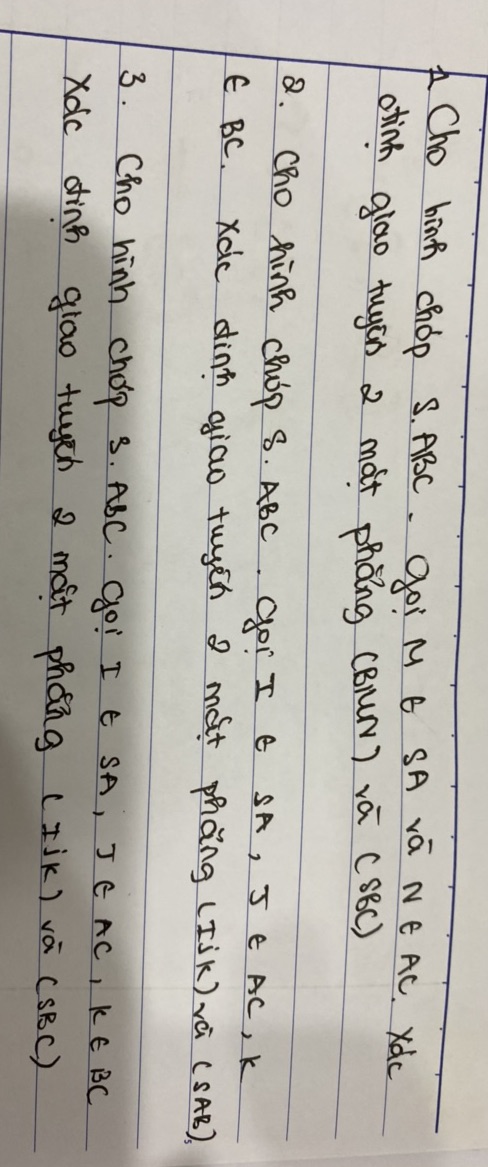 1 Cho hình chóp S.ABC. Gọi M ∈ SA và N ∈ AC. Xác
định giao tuyến 2 mặt phẳng (BMN) và (SBC)
2. Cho hình chóp S.ABC. Gọi I ∈ SA, J ∈ AC, K
∈ BC. Xác định giao tuyến 2 mặt phẳng (IJK) và (SAB)
3. Cho hình chóp S.ABC. Gọi I ∈ SA, J ∈ AC, K ∈ BC
Xác định giao tuyến 2 mặt phẳng (IJK) và (SBC)